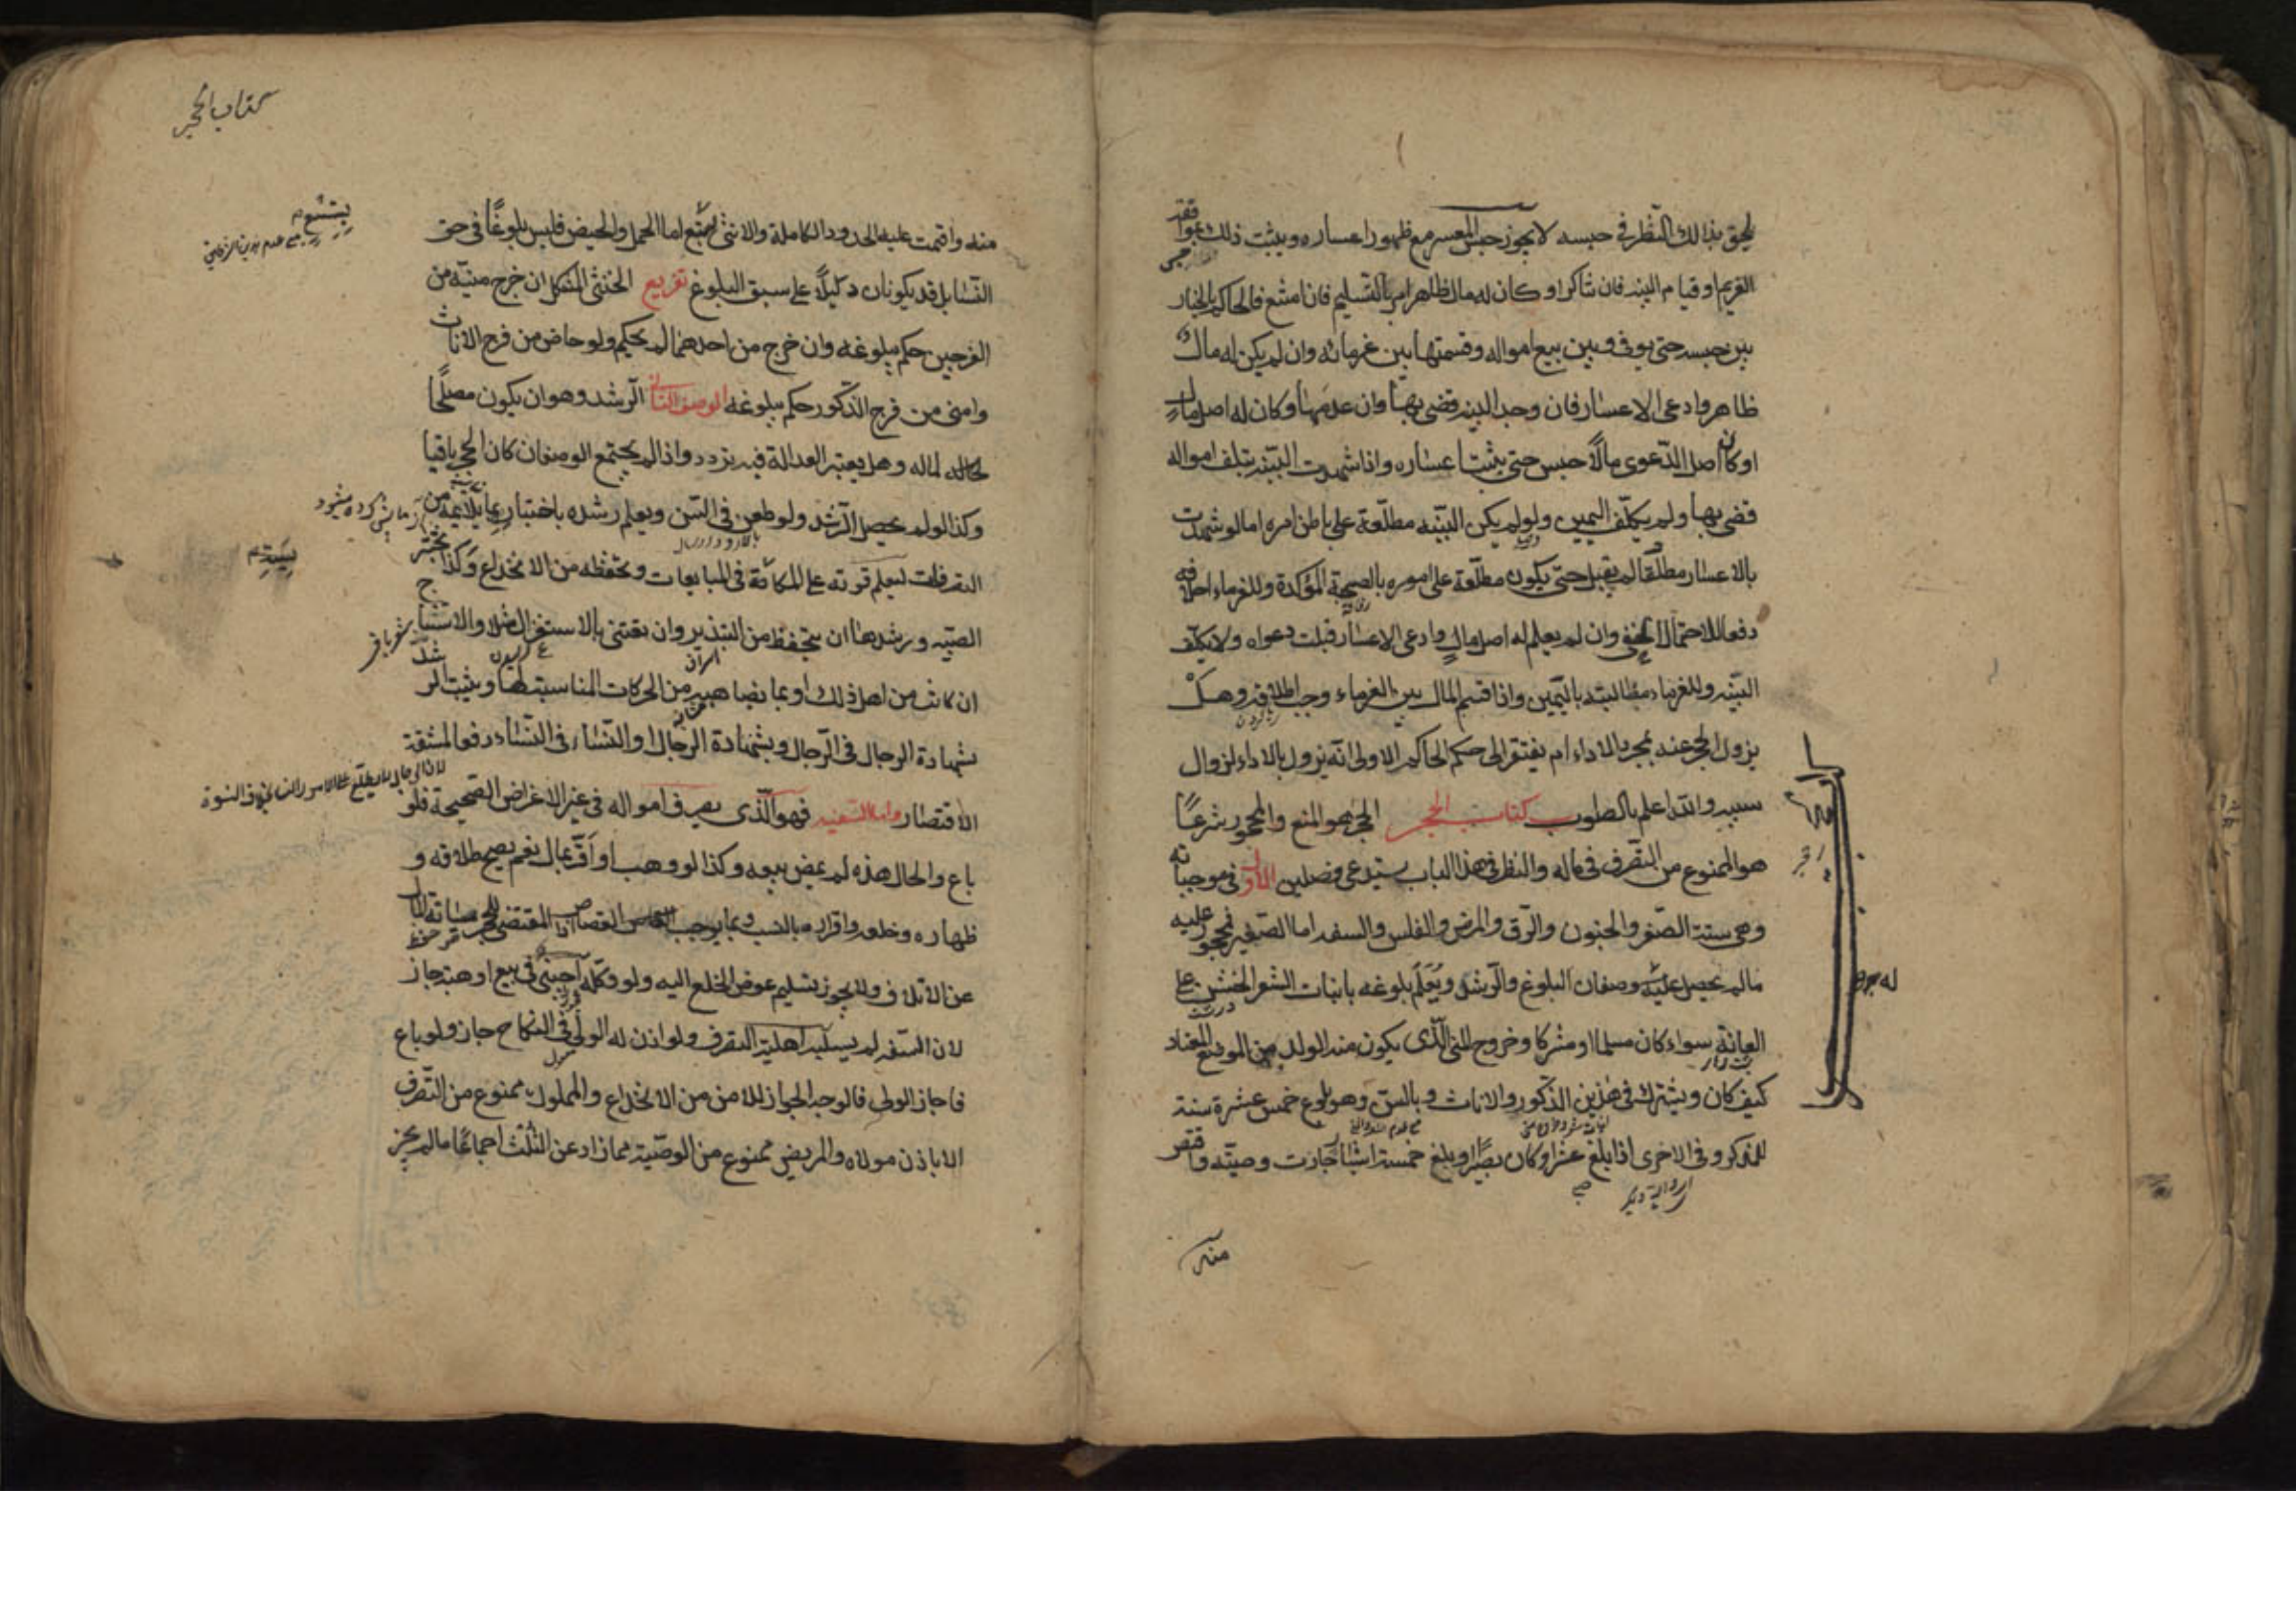 يلحق بذلك النظر في حبسه لا يجوز حبس المعسر مع ظهور اعساره ويثبت ذلك بموافقة
الغريم او قيام البينه فان تناكرا وكان له مال ظاهر امر بالتسليم فان امتنع فالحاكم بالخيار
بين حبسه حتى يوفى وبين بيع امواله وقسمتها بين غرمائه وان لم يكن له مال
ظاهر وادعى الاعسار فان وجد البينه قضى بها وان عدمها وكان له اصل مال
او كان اصل الدعوى مالًا حبس حتى يثبت اعساره واذا شهدت البينه بتلف امواله
قضى بها ولم يكلف اليمين ولو لم يكن البينه مطلعة على باطن امره اما لو شهدت
بالاعسار مطلقا لم يقبل حتى يكون مطلعة على اموره بالصحبة المؤكدة وللغرماء احلافه
دفعا للاحتمال الخفى وان لم يعلم له اصل مال وادعى الاعسار قبلت دعواه ولا يكلف
البينه وللغرماء مطالبته باليمين واذا قسم المال بين الغرماء وجب اطلاقه وهل
يزول الحجر عنه بمجرد الاداء ام يفتقر الى حكم الحاكم الاولى انه يزول بالاداء لزوال
سببه والله اعلم بالصواب كتاب الحجر الحجر هو المنع والمحجور شرعًا
هو الممنوع من التصرف في ماله والنظر في هذا الباب يستدعى فصلين الاول في موجباته
وهى ستة الصغر والجنون والرق والمرض والفلس والسفه اما الصغير فمحجور عليه
ما لم يحصل عليه وصفان البلوغ والرشد ويعلم بلوغه بانبات الشعر الخشن على
العانة سواء كان مسلما او مشركا وخروج المنى الذى يكون منه الولد من الموضع المعتاد
كيف كان ويشترك في هذين الذكور والاناث و بالسن وهو بلوغ خمس عشرة سنة
للذكر وفى الاخرى اذا بلغ عشرا وكان بصيرًا او بلغ خمسة اشبار جازت وصيته واقتص
منه
كتاب الحجر
منه واقيمت عليه الحدود الكاملة والانثى بتسع اما الحمل والحيض فليس بلوغًا في حق
النساء بل قد يكونان دليلًا على سبق البلوغ تفريع الخنثى المشكل ان خرج منيه من
الفرجين حكم ببلوغه وان خرج من احدهما لم يحكم ولو حاض من فرج الاناث
وامنى من فرج الذكور حكم ببلوغه الوصف الثانى الرشد وهو ان يكون مصلحًا
لماله وهل يعتبر العدالة فيه تردد واذا لم يجتمع الوصفان كان الحجر باقيا
وكذا لو لم يحصل الرشد ولو طعن في السن ويعلم رشده باختباره بما يلائمه من
التصرفات ليعلم قوته على المكائسة في المبايعات وتحفظه من الانخداع وكذا تختبر
الصبيه ورشدها ان يتحفظ من التبذير وان تعتنى بالاستغزال مثلا والاستنتاج
ان كانت من اهل ذلك او بما يضاهيه من الحركات المناسبة لها ويثبت الرشد
بشهادة الرجال في الرجال وبشهادة الرجال او النساء في النساء دفعا لمشقة
الاقتصار واما السفيه فهو الذى يصرف امواله في غير الاغراض الصحيحة فلو
باع والحال هذه لم يمض بيعه وكذا لو وهب او اقر بمال نعم يصح طلاقه و
ظهاره وخلعه واقراره بالنسب وبما يوجب القصاص اذ المقتضى للحجر صيانة المال
عن الاتلاف ولا يجوز تسليم عوض الخلع اليه ولو وكله اجنبى في بيع او هبة جاز
لان السفه لم يسلبه اهلية التصرف ولو اذن له الولى في النكاح جاز ولو باع
فاجاز الولى فالوجه الجواز للامن من الانخداع والمملوك ممنوع من التصرف
الا باذن مولاه والمريض ممنوع من الوصية مما زاد عن الثلث اجماعًا ما لم يجز